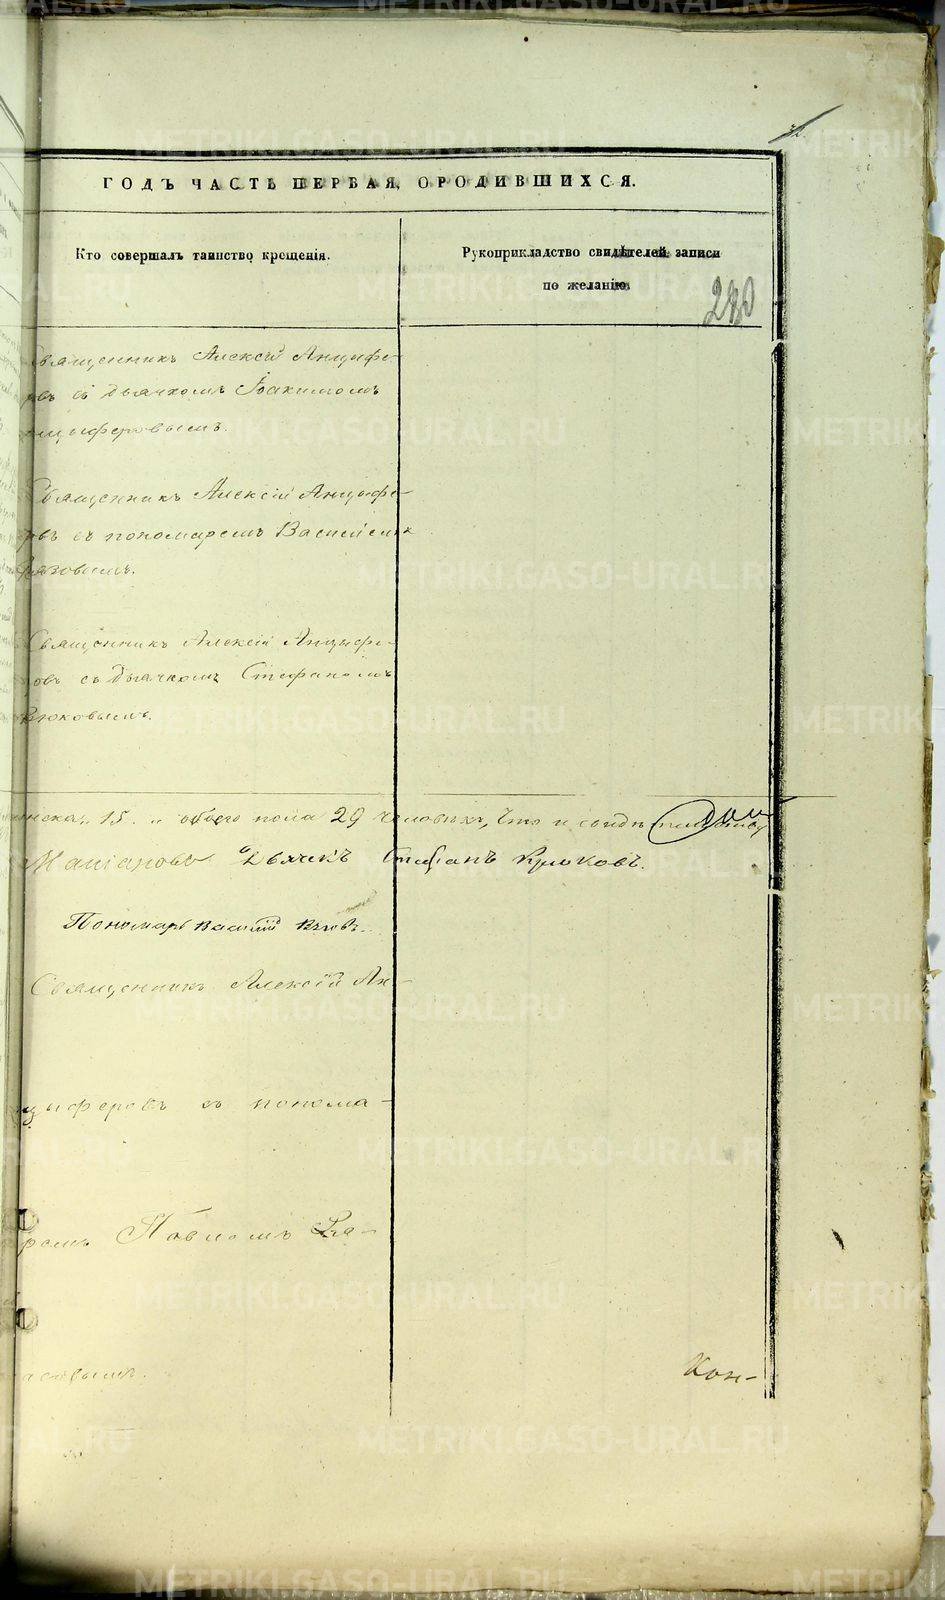 ГОДЪ ЧАСТЬ ПЕРВАЯ, О РОДИВШИХСЯ.
Кто совершалъ таинство крещенія.
Рукоприкладство свидѣтелей записи
по желанію.
280
Священникъ Алексій Анциферовъ
ровъ съ дьячкомъ Іоакимомъ
нциферовымъ.
Священникъ Алексій Анцыфе-
ровъ съ пономаремъ Василіемъ
Священникъ Алексій Анцыфе-
ровъ съ дьячкомъ Стефаномъ
рюковымъ.
женска 15. обоего пола 29 человѣкъ, Что и свидѣтельствую
Дьячекъ Стефанъ Крюковъ.
Пономарь Василій
Священникъ Алексій Ан-
цыферовъ съ понома-
ремъ Павломъ
Кон-
METRIKI.GASO-URAL.RU